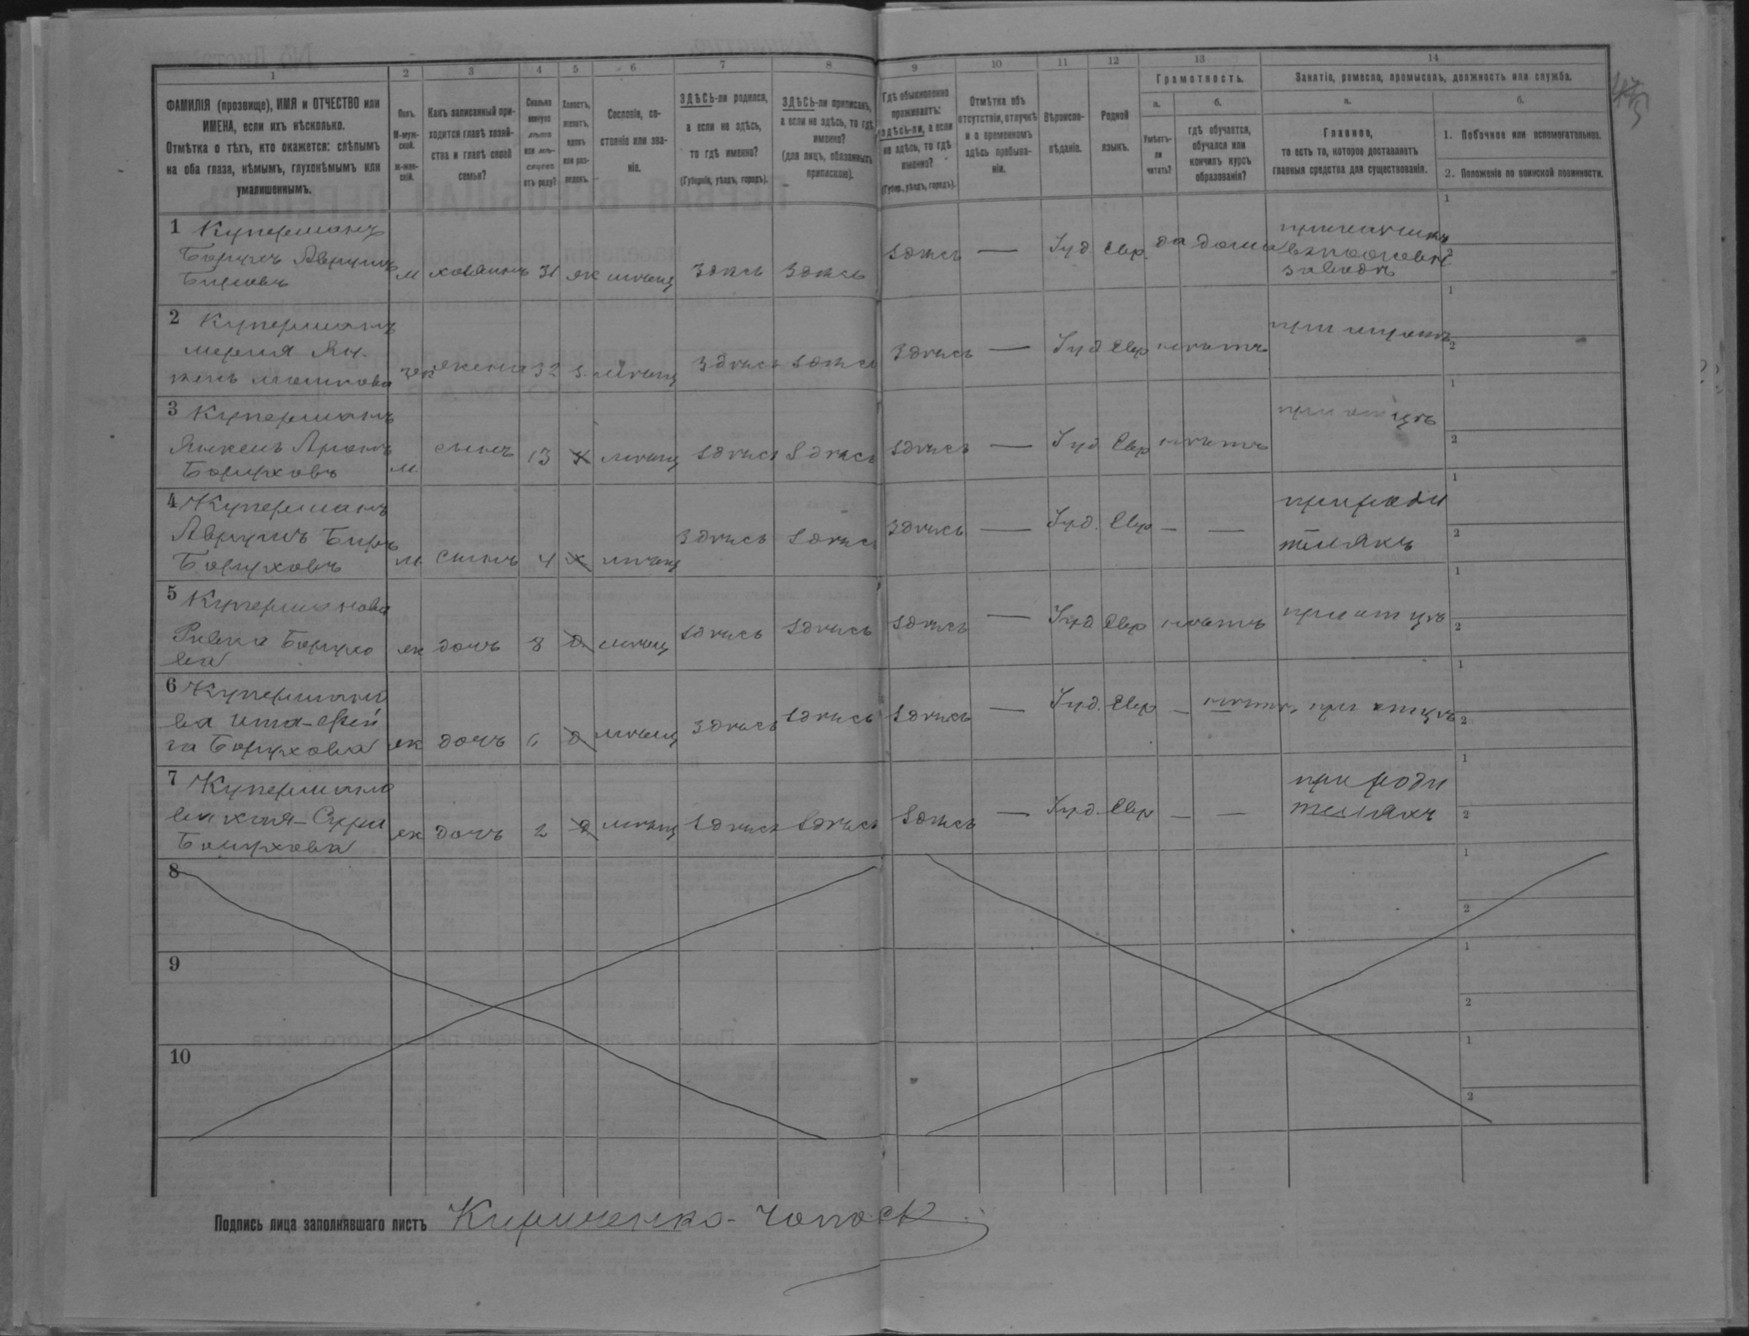 1 2 3 4 5 6 7 8 9 10 11 12 13 14
ФАМИЛІЯ (прозвище), ИМЯ и ОТЧЕСТВО или
ИМЕНА, если ихъ нѣсколько.
Отмѣтка о тѣхъ, кто окажется: слѣпымъ
на оба глаза, нѣмымъ, глухонѣмымъ или
умалишеннымъ.
Полъ.
М-муж-
ской.
Ж-жен-
скій.
Какъ записанный при-
ходится главѣ хозяй-
ства и главѣ своей
семьи?
Сколько
минуло
лѣтъ
или мѣ-
сяцевъ
отъ роду?
Холостъ,
женатъ,
вдовъ
или раз-
веденъ.
Сословіе, со-
стояніе или зва-
ніе.
ЗДѢСЬ-ли родился,
а если не здѣсь,
то гдѣ именно?
(Губернія, уѣздъ, городъ).
ЗДѢСЬ-ли приписанъ,
а если не здѣсь, то гдѣ
именно?
(для лицъ, обязанныхъ
припискою).
Гдѣ обыкновенно
проживаетъ:
здѣсь-ли, а если
не здѣсь, то гдѣ
именно?
(Губер., уѣздъ, городъ).
Отмѣтка объ
отсутствіи, отлучкѣ
и о временномъ
здѣсь пребыва-
ніи.
Вѣроиспо-
вѣданіе.
Родной
языкъ.
Грамотность.
а.
Умѣетъ-
ли
читать?
б.
гдѣ обучается,
обучался или
кончилъ курсъ
образованія?
Занятіе, ремесло, промыселъ, должность или служба.
а.
Главное,
то есть то, которое доставляетъ
главныя средства для существованія.
б.
1. Побочное или вспомогательное.
2. Положеніе по воинской повинности.
1 Куперманъ
Борухъ Аврумъ
м хозяинъ 31 ж мѣщ здѣсь здѣсь здѣсь — Iуд Евр да дома
заводѣ
2 Куперманъ
жена 32 мѣщ здѣсь здѣсь здѣсь — Iуд Евр нѣтъ при мужѣ
3 Куперманъ
Янкель Аронъ
Боруховъ
м сынъ 13 х мѣщ здѣсь здѣсь здѣсь — Iуд. Евр нѣтъ при отцѣ
4 Куперманъ
Аврумъ Беръ
Боруховъ
м сынъ 4 х мѣщ здѣсь здѣсь здѣсь — Iуд. Евр — — при роди
теляхъ
5 Куперманова
Ривка Борухо
ва
ж дочь 8 д мѣщ здѣсь здѣсь здѣсь — Iуд Евр нѣтъ при отцѣ
6 Купермано
ва Ита-Фей
га Боруховна
ж дочь 6 д мѣщ здѣсь здѣсь здѣсь — Iуд. Евр — нѣтъ при отцѣ
7 Купермано
ва Хая-Сура
Борухова
ж дочь 2 д мѣщ здѣсь здѣсь здѣсь — Iуд. Евр — — при роди
теляхъ
8
9
10
Подпись лица заполнявшаго листъ